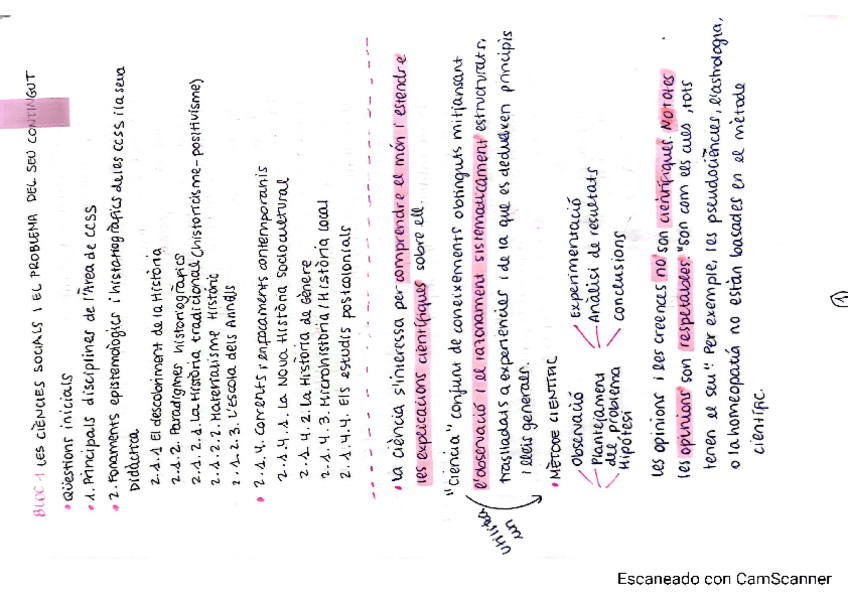 BLOC 1 LES CIÈNCIES SOCIALS I EL PROBLEMA DEL SEU CONTINGUT
• Qüestions inicials
• 1. Principals disciplines de l'Àrea de CCSS
• 2. Fonaments epistemològics i historiogràfics de les CCSS i la seva
Didàctica
2.1.1 El descobriment de la Història
2.1.2. Paradigmes historiogràfics
2.1.2.1. La Història tradicional (historicisme-positivisme)
2.1.2.2. Materialisme Històric
2.1.2.3. L'Escola dels Annals
• 2.1.4. Corrents i enfocaments contemporanis
2.1.4.1. La Nova Història Sociocultural
2.1.4.2. La Història de Gènere
2.1.4.3. Microhistòria / Història Local
2.1.4.4. Els estudis postcolonials
• La ciència s'interessa per comprendre el món i estendre
les explicacions científiques sobre ell.
"Ciència" conjunt de coneixements obtinguts mitjansant
l'observació i el razonament sistemàticament estructurats,
traslladats a experiències i de la que es dedueixen principis
i lleis generals.
utilitza
un
• MÈTODE CIENTÍFIC
Observació
Plantejament
del problema
Hipòtesi
Experimentació
Anàlisi de resultats
conclusions
Les opinions i les creences no son científiques. No totes
les opinions son respetables: "son com els culs, tots
tenen el seu". Per exemple, les pseudociències, l'astrologia,
o la homeopatia no están basades en el mètode
científic.
1
Escaneado con CamScanner